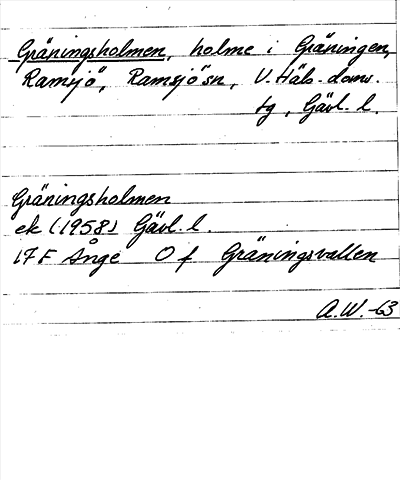 Gräningsholmen, holme i Gräningen,
Ramsjö, Ramsjösn, V. Häls. doms.
tg, Gävl. l.
Gräningsholmen
ek (1958) Gävl. l.
17 F Ånge O f Gräningsvallen
A.W. -63